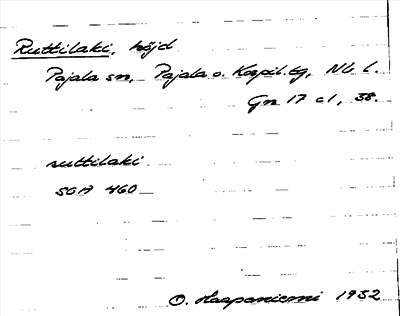 Ruttilaki, höjd
Pajala sn, Pajala o. Korpil. tg, Nb. l.
Gn 17 c1, 38.
ruttilaki
SGA 460
O. Haapaniemi 1932